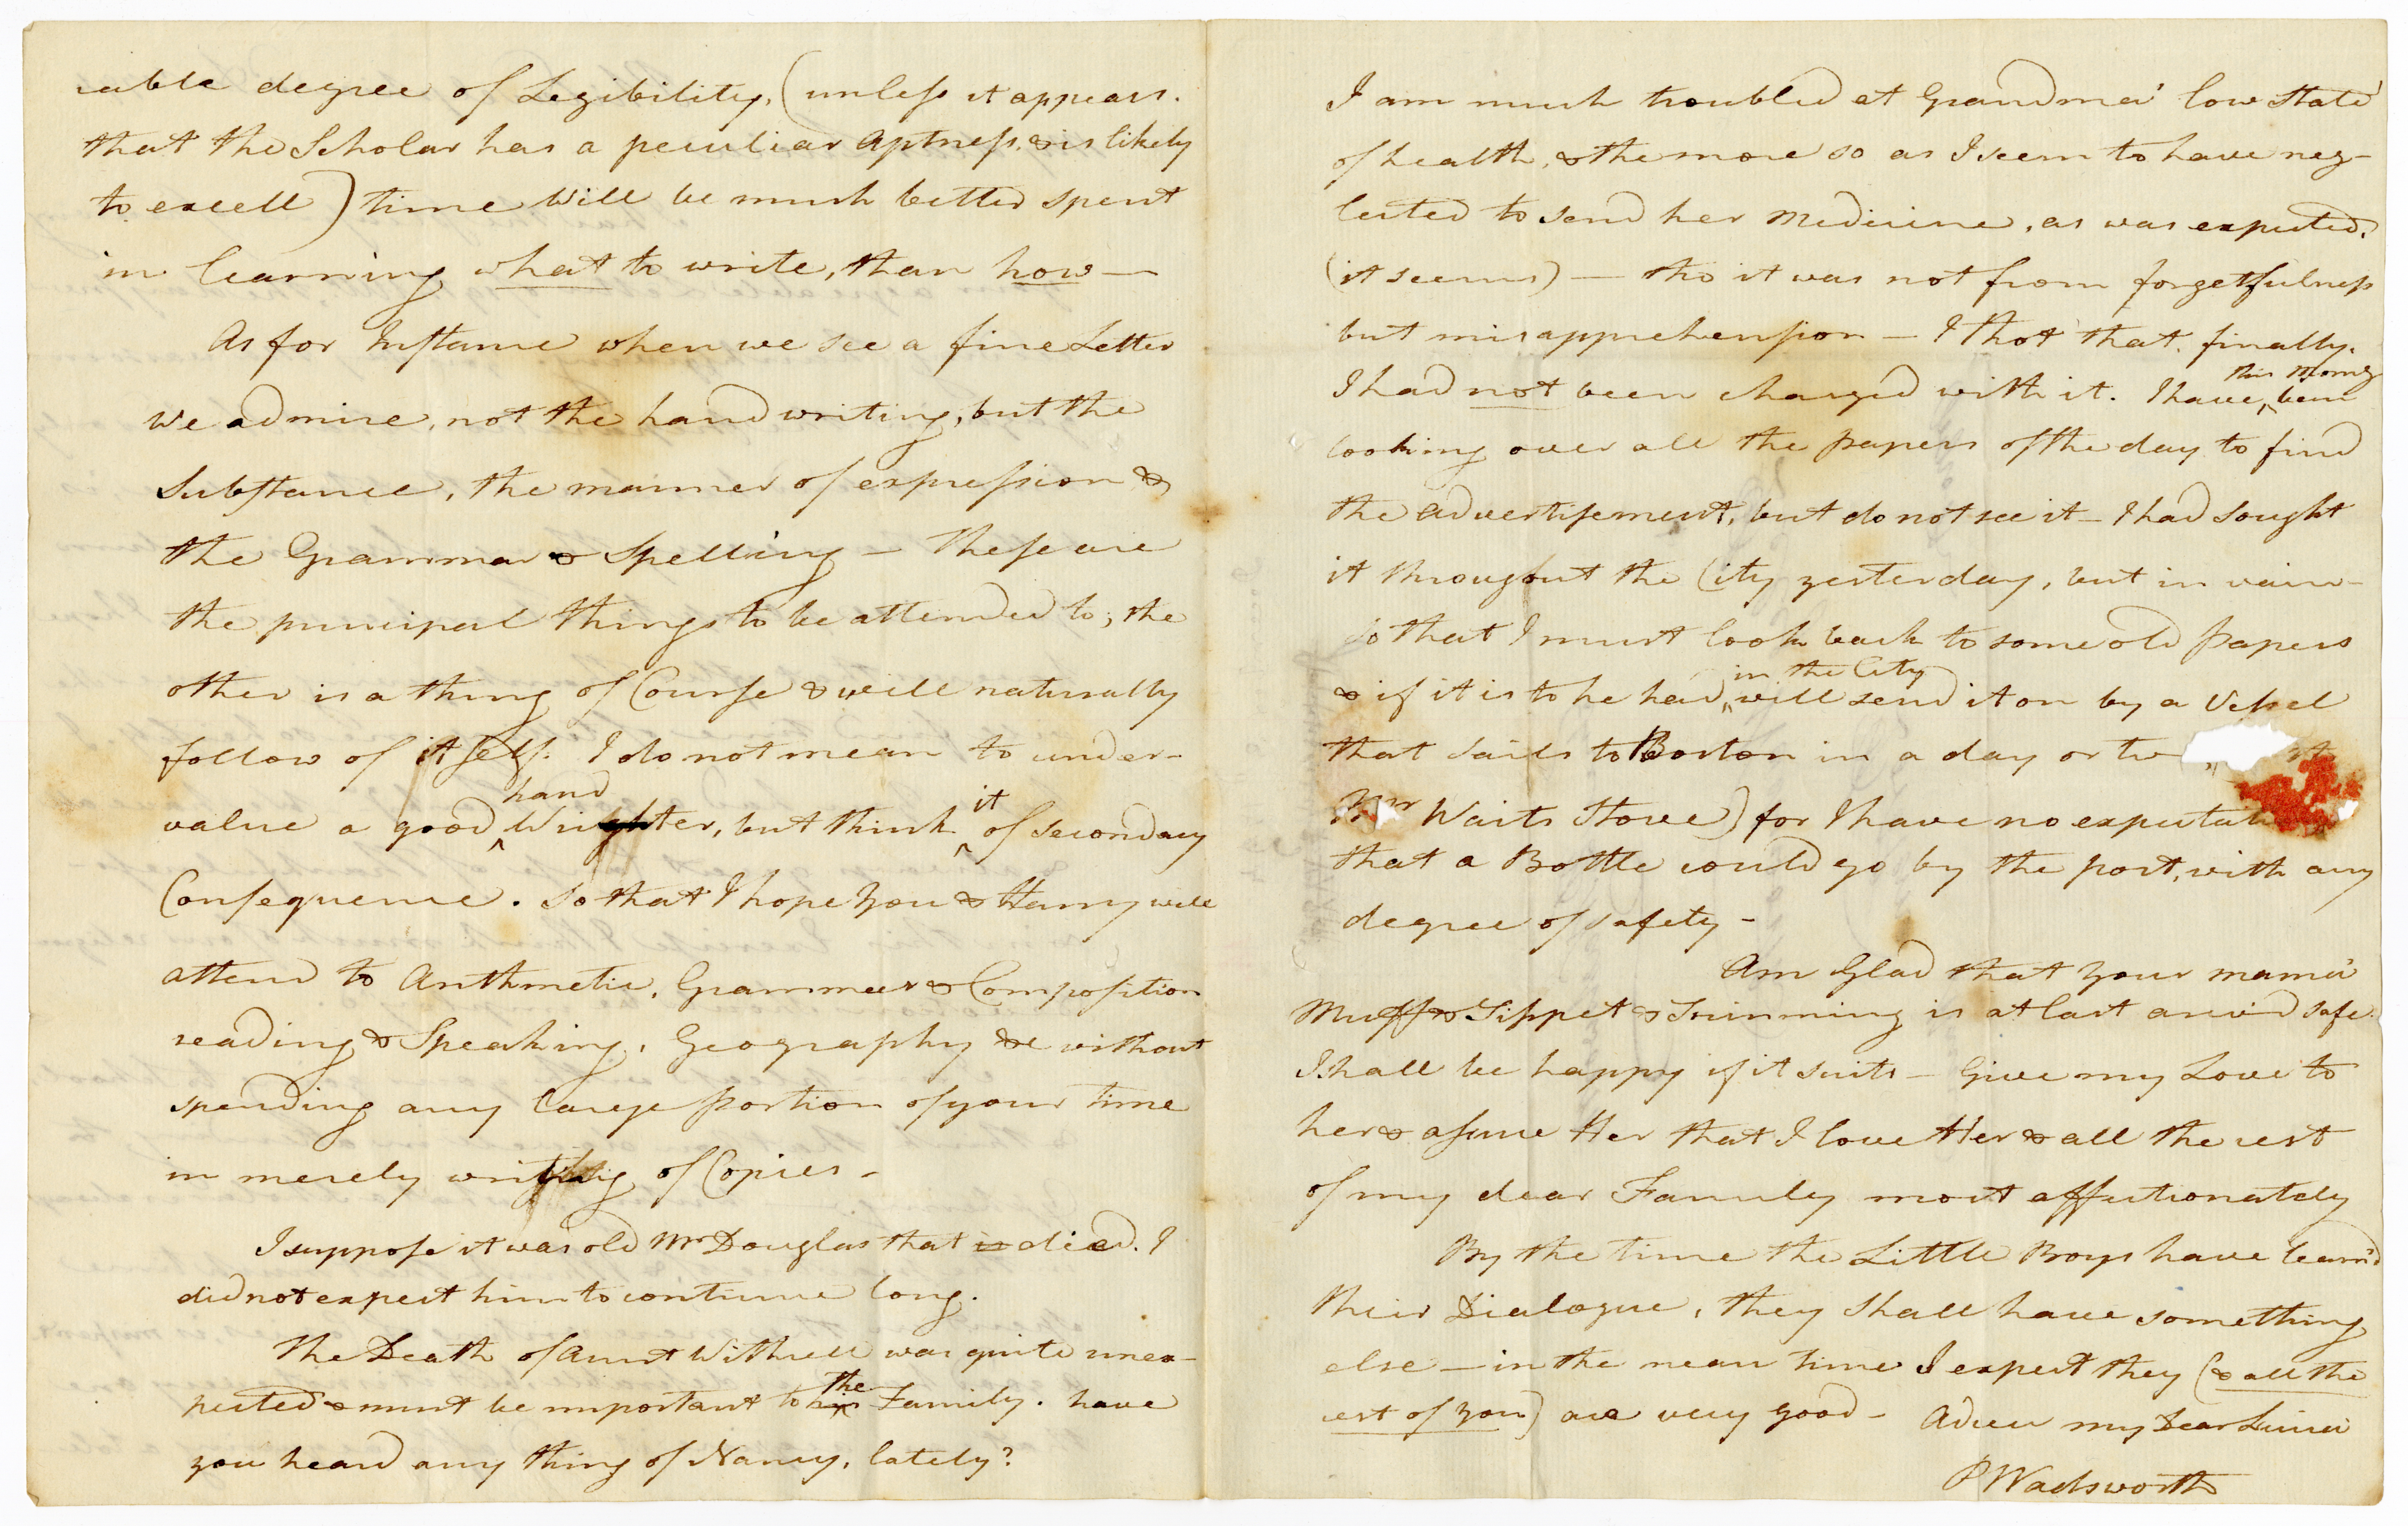 cable degree of Legibility, (unless it appears.
that the Scholar has a peculiar aptness, & is likely
to excell) time will be much better spent
in learning what to write, than how —
As for Instance when we see a fine Letter
we admire, not the hand writing, but the
Substance, the manner of expression &
the Grammar & Spelling — These are
the principal things to be attended to; the
other is a thing of Course & will naturally
follow of itself. I do not mean to under-
hand
value a good Wrighter, but think it of secondary
Consequence. So that I hope you & Harry will
attend to Arithmetic, Grammer & Composition
reading & Speaking, Geography &c without
spending any large portion of your time
in merely writing of Copies -
I suppose it was old Mr Douglas that is died. I
did not expect him to continue long.
The Death of Aunt Withrell was quite unex-
pected & must be important to his the Family. have
you heard any thing of Nancy, lately?
I am much troubled at Grandma' low State
of health, & the more so as I seem to have neg-
lected to send her Medicine, as was expected,
(it seems) — tho it was not from forgetfulness
but misapprehension — I thot that, finally,
this morng
I had not been charged with it. I have been
looking over all the papers of the day to find
the advertisement, but do not see it — I had sought
it throughout the City yesterday, but in vain —
so that I must look back to some old papers
in the City
& if it is to be had, will send it on by a Vessel
that sails to Boston in a day or tw
Mr Waits Store) for I have no expectati
that a Bottle could go by the post, with any
degree of safety -
Am Glad that your mama'
Muff & Tippet & Trimming is at last arived safe.
I shall be happy if it suits — Give my Love to
her & assure Her that I love Her & all the rest
of my dear Family most affectionately
By the time the Little Boys have learn'd
their Dialogue, they shall have something
else — in the mean time I expect they (& all the
rest of you) are very good - Adieu my Dear
P Wadsworth